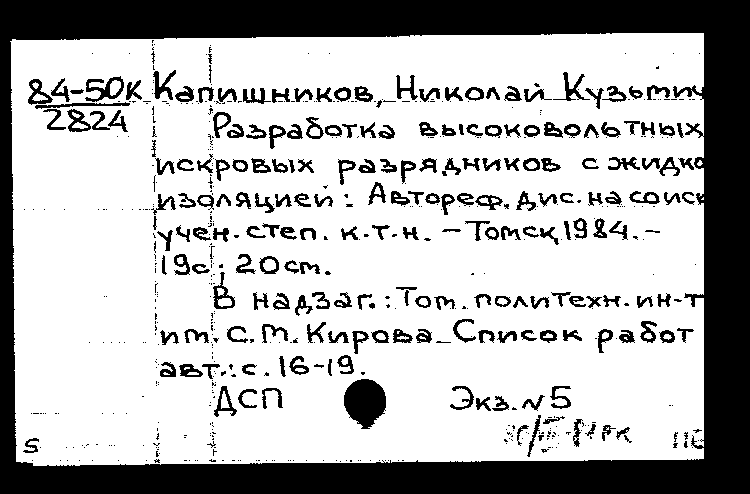 84-50К Капишников, Николай Кузьмич
2824
Разработка высоковольтных
искровых разрядников с жидко
изоляцией: Автореф. дис. на соиск
учен. степ. к.т.н. – Томск, 1984. –
19с; 20 cm.
В надзаг.: Том. политехн. ин-т
им. С.М. Кирова. Список работ
авт.: с. 16-19.
ДСП Экз. N 5
s